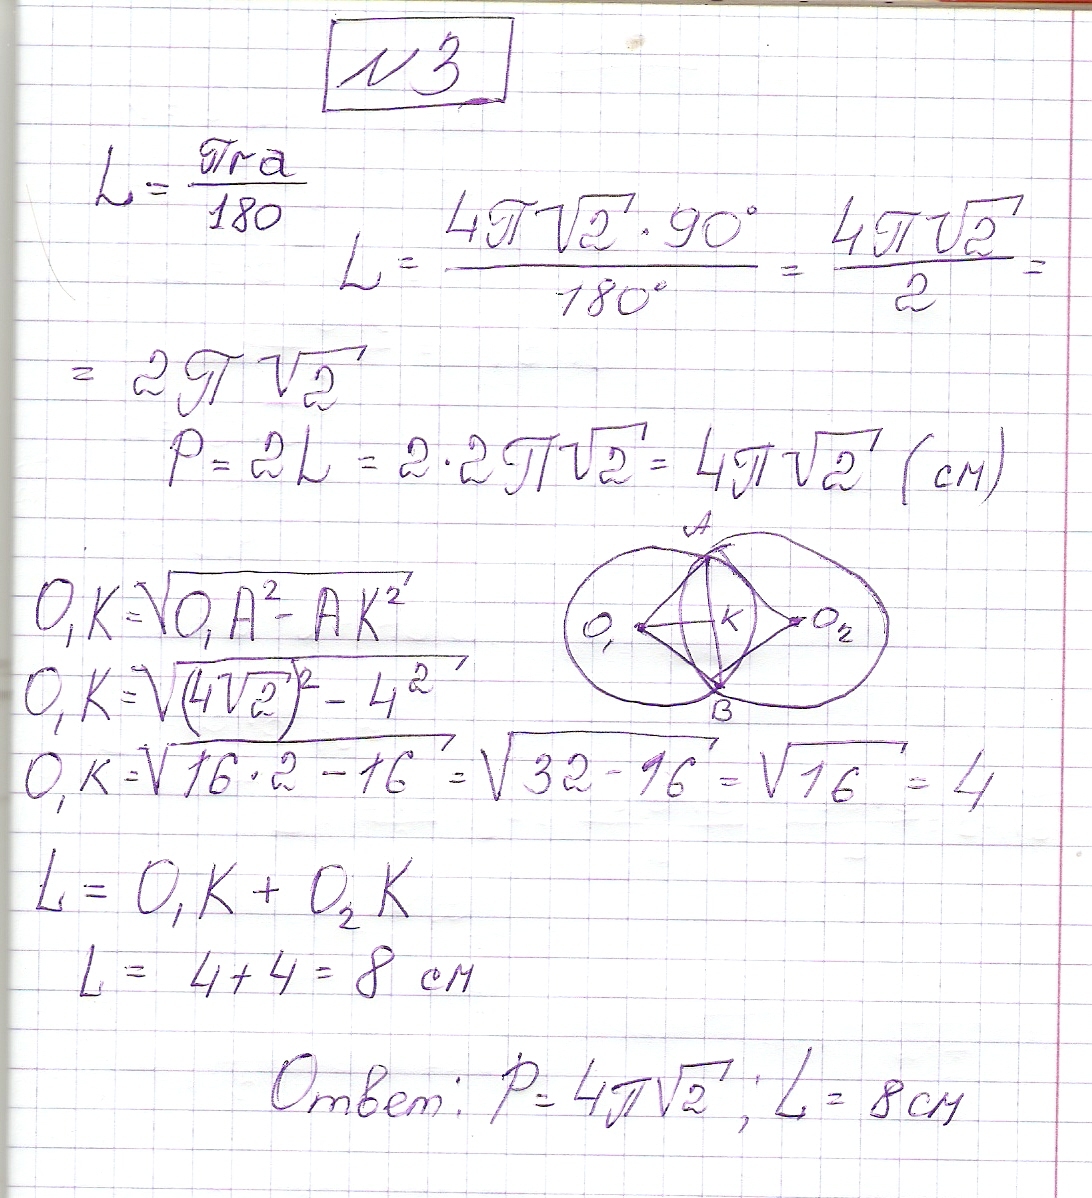 N3
L = πra/180
L = 4π√2 · 90°/180° = 4π√2/2 =
= 2π√2
P = 2L = 2·2π√2 = 4π√2 (см)
A
O₁K = √O₁A² - AK²
O₁ K O₂
O₁K = √(4√2)² - 4²
B
O₁K = √16·2 - 16 = √32 - 16 = √16 = 4
L = O₁K + O₂K
L = 4 + 4 = 8 см
Ответ: P = 4π√2 ; L = 8 см